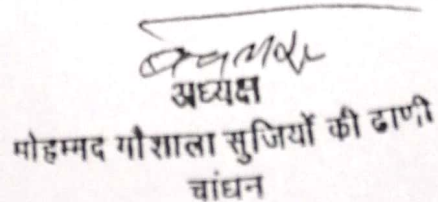 अध्यक्ष
मोहम्मद गौशाला सुजियों की ढाणी
चांधन